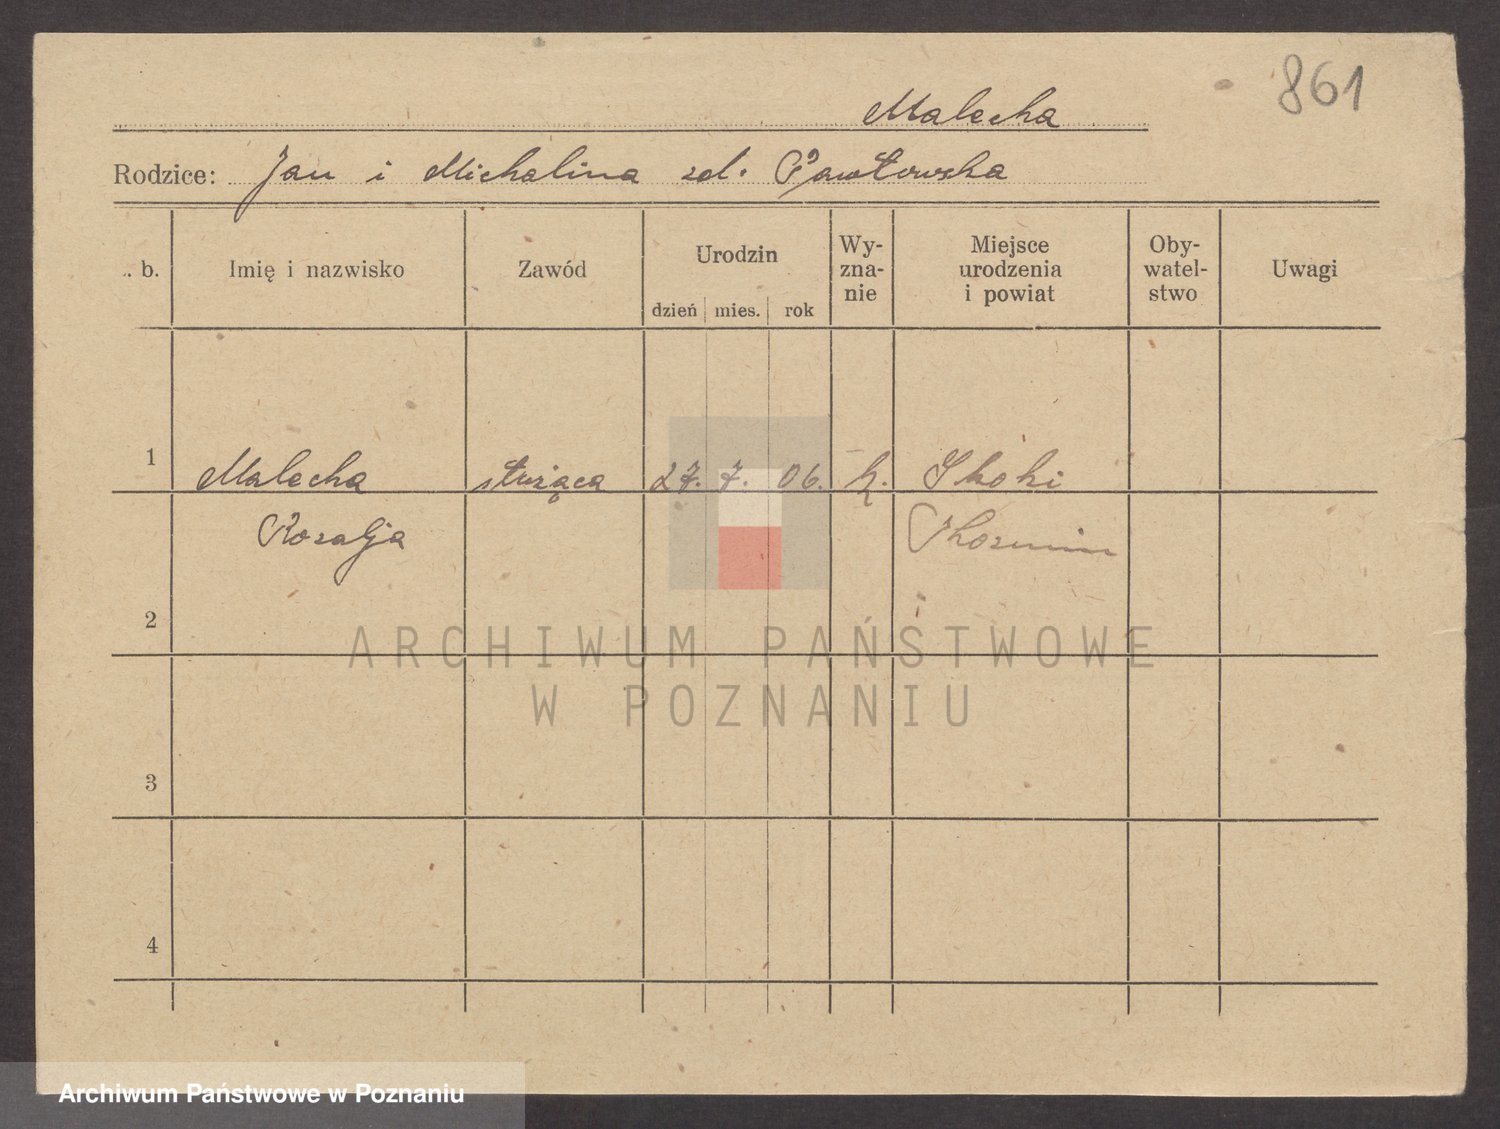 861
Malecha
Rodzice: Jan i Michalina zd. Pawłowska
. b.
Imię i nazwisko
Zawód
Urodzin
dzień mies. rok
Wy-
zna-
nie
Miejsce
urodzenia
i powiat
Oby-
watel-
stwo
Uwagi
1 Malecha służąca 27. 7. 06. k. Skoki
Rozalja
2
3
4
ARCHIWUM PAŃSTWOWE
W POZNANIU
Archiwum Państwowe w Poznaniu